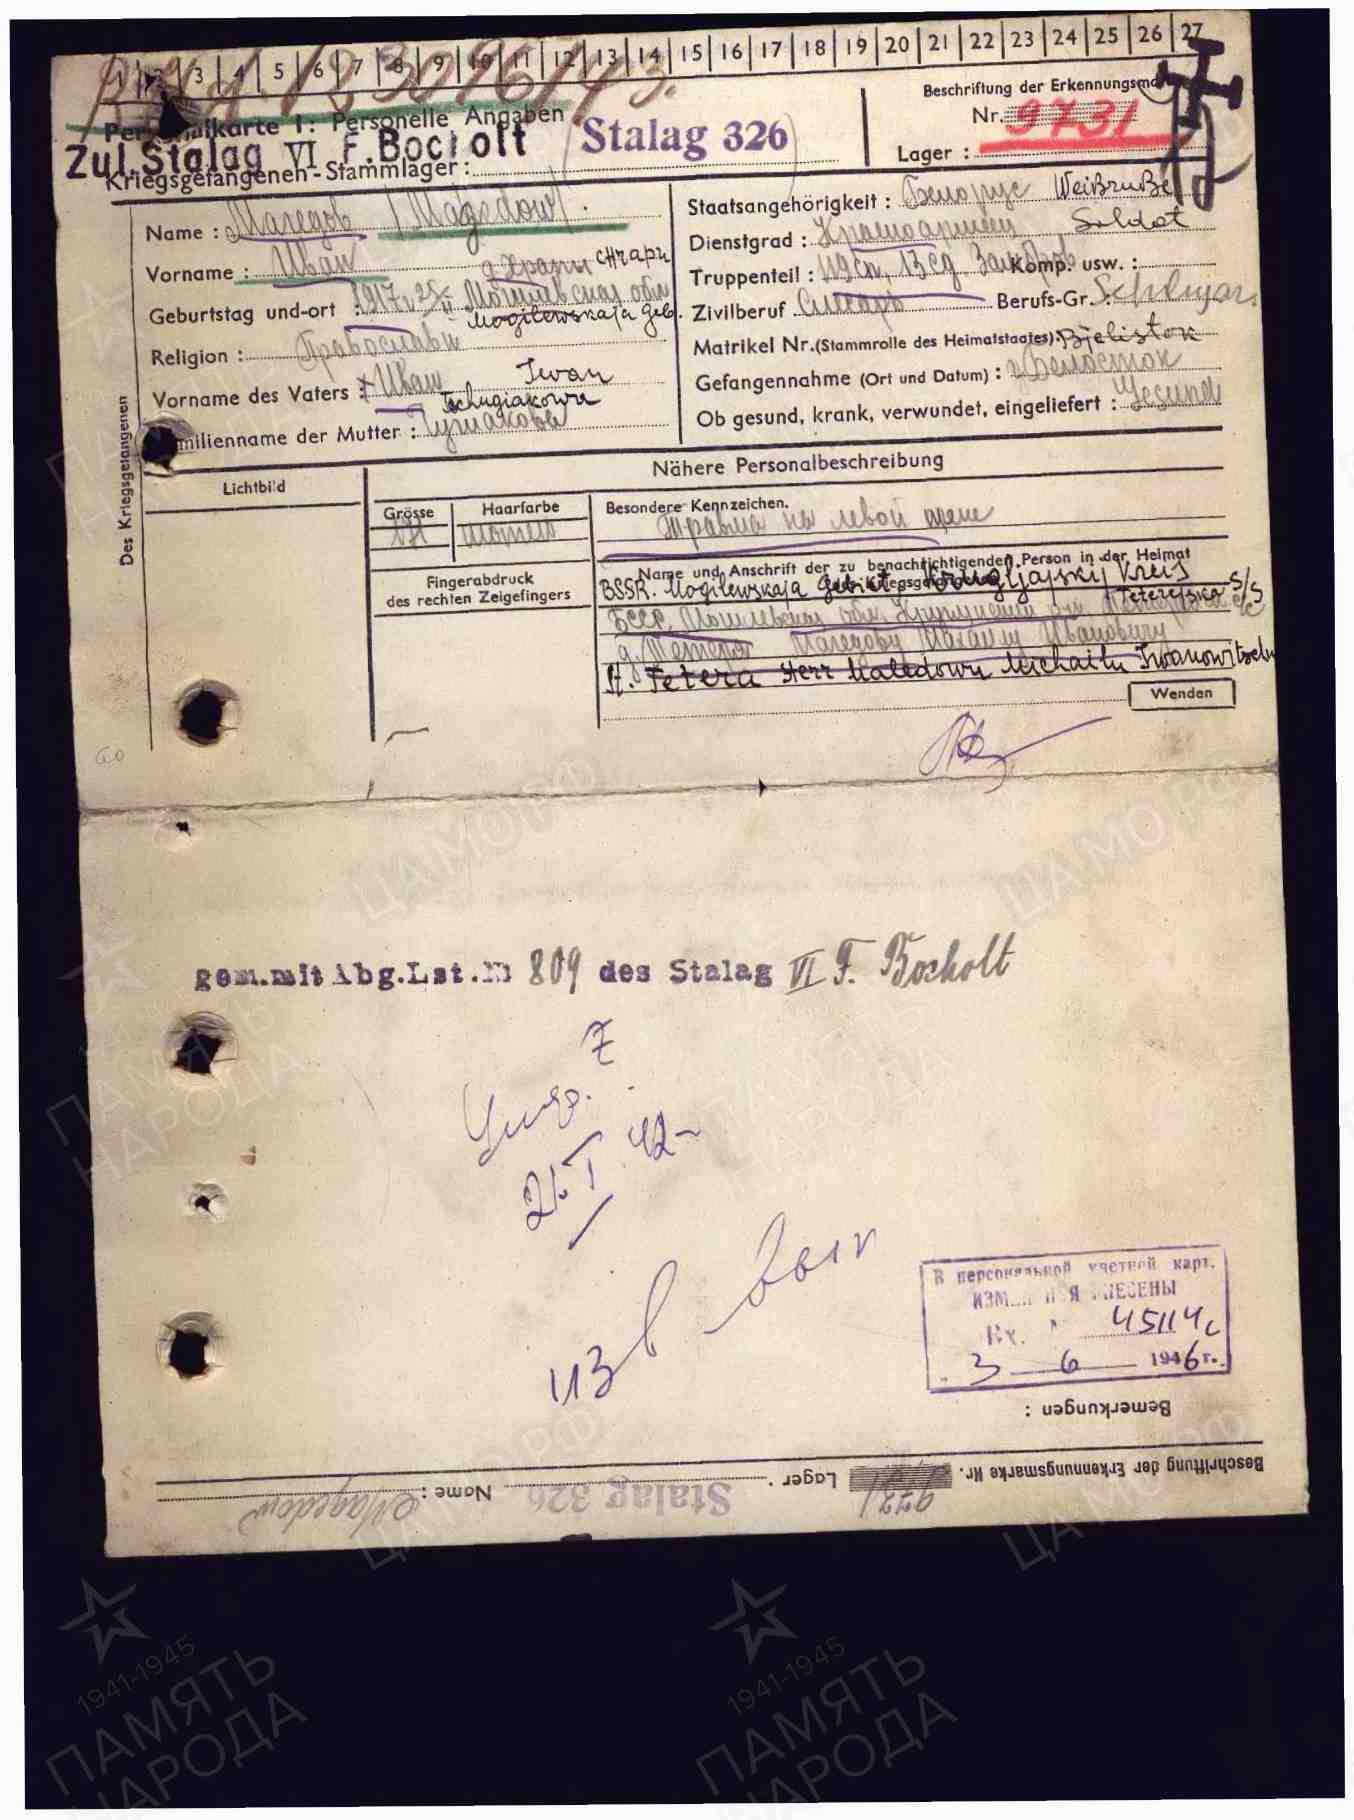 1 2 3 4 5 6 7 8 9 10 11 12 13 14 15 16 17 18 19 20 21 22 23 24 25 26 27
Personalkarte I: Personelle Angaben
Beschriftung der Erkennungsmarke
Nr. 9731
Zul. Stalag VI F. Bocholt
Stalag 326
Kriegsgefangenen-Stammlager:
Lager:
Des Kriegsgefangenen
Name: Магедов /Magedow/.
Vorname: Иван
Geburtstag und-ort: 1917г 25/II Могилевская обл
Mogilewskaja Geb.
Religion: Православн
Vorname des Vaters: Иван Iwan
Familienname der Mutter:
Staatsangehörigkeit: Белорус Weißruße
Dienstgrad: Красноармеец Soldat
Truppenteil: Komp. usw.:
Zivilberuf Слесарь Berufs-Gr.
Matrikel Nr. (Stammrolle des Heimatstaates): Bjelistok
Gefangennahme (Ort und Datum): г Белосток
Ob gesund, krank, verwundet, eingeliefert: Gesund
Nähere Personalbeschreibung
Lichtbild
Grösse
Haarfarbe
Besondere Kennzeichen.
171
на левой
Fingerabdruck
des rechten Zeigefingers
Name und Anschrift der zu benachrichtigenden Person in der Heimat
des Kriegsgefangenen
BSSR. Mogilewskaja Gebiet. Krugljajskij Kreis
Teterejska S/S
БССР, Могилевская обл, Круглянский
д. Магедову Михаилу Ивановичу
Tetera Herr Maledowu Michailu Iwanowitschu
Wenden
60
gem.mit Abg.Lst.N 809 des Stalag VI F. Bocholt
Z
21.I 42
из в
В персональной учетной карт.
ИЗМЕНЕНИЯ ВНЕСЕНЫ
Вх. № 45114с
3 6 1946г.
Bemerkungen:
Beschriftung der Erkennungsmarke Nr. 9731 Lager: Stalag 326 Name: Magedow
ЦАМО РФ
1941-1945
ПАМЯТЬ
НАРОДА